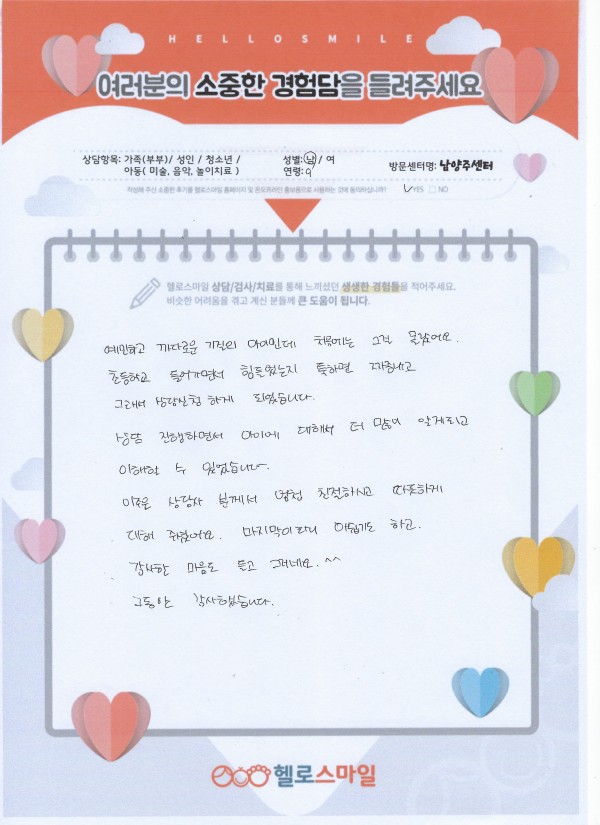 HELLOSMILE
여러분의 소중한 경험담을 들려주세요
상담항목: 가족(부부)/ 성인 / 청소년 /
아동( 미술, 음악, 놀이치료 )
성별: 남 / 여
연령: 9
방문센터명: 남양주센터
작성해 주신 소중한 후기를 헬로스마일 홈페이지 및 온오프라인 홍보용으로 사용하는 것에 동의하십니까? ✓YES □ NO
헬로스마일 상담/검사/치료를 통해 느끼셨던 생생한 경험들을 적어주세요.
비슷한 어려움을 겪고 계신 분들께 큰 도움이 됩니다.
예민하고 까다로운 기질의 아이인데 처음에는 그걸 몰랐어요.
초등학교 들어가면서 힘들었는지 툭하면 짜증내고
그래서 상담신청 하게 되었습니다.
상담 진행하면서 아이에 대해서 더 많이 알게되고
이해할 수 있었습니다.
상담사 분께서 엄청 친절하시고 따뜻하게
대해 주셨어요. 마지막이라니 아쉽기도 하고.
감사한 마음도 들고 그러네요.^^
그동안 감사했습니다.
헬로스마일